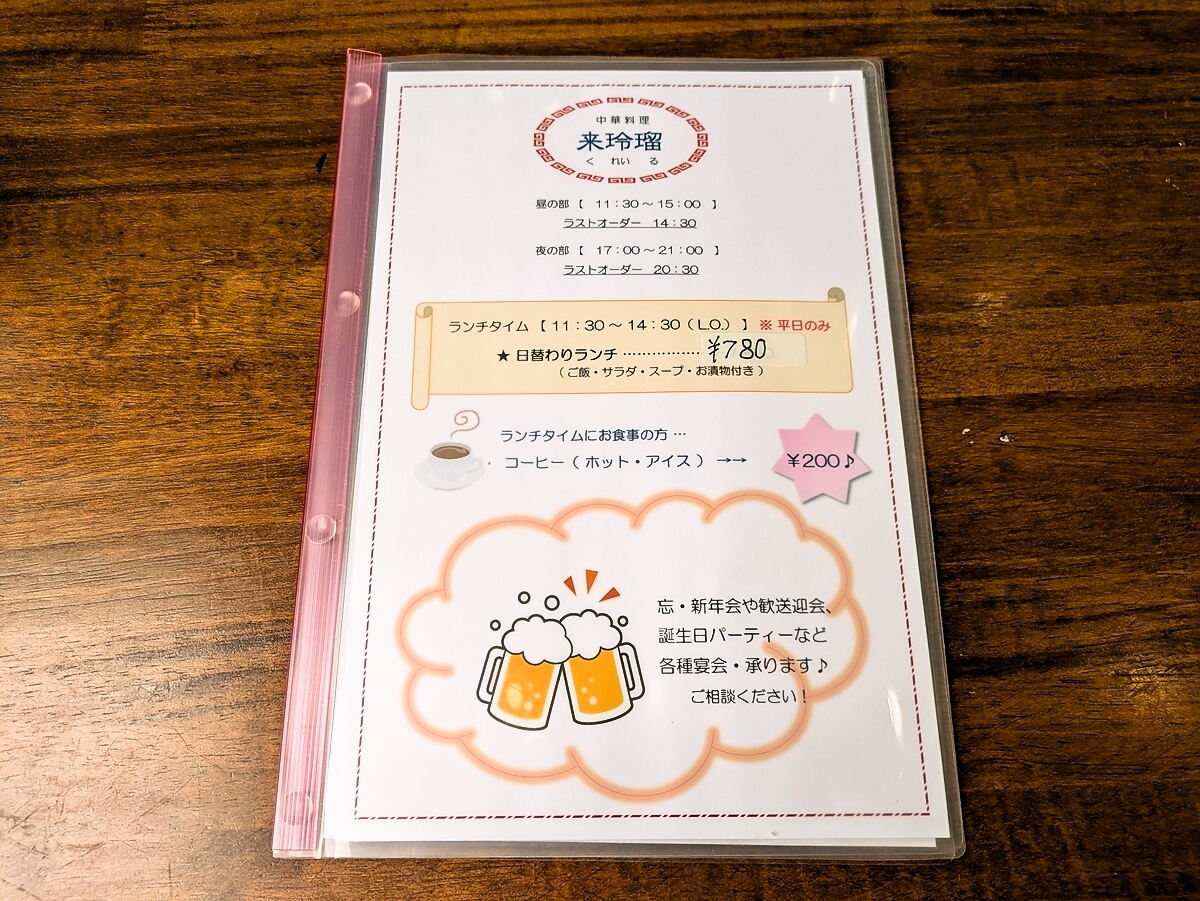 中華料理
来玲瑠
くれいる
昼の部 【 11：30～15：00 】
ラストオーダー 14：30
夜の部 【 17：00～21：00 】
ラストオーダー 20：30
ランチタイム 【 11：30～14：30（L.O.） 】 ※ 平日のみ
★ 日替わりランチ ……………… ¥780
（ ご飯・サラダ・スープ・お漬物付き ）
ランチタイムにお食事の方 …
コーヒー（ ホット・アイス ） →→ ¥200♪
忘・新年会や歓送迎会、
誕生日パーティーなど
各種宴会・承ります♪
ご相談ください！